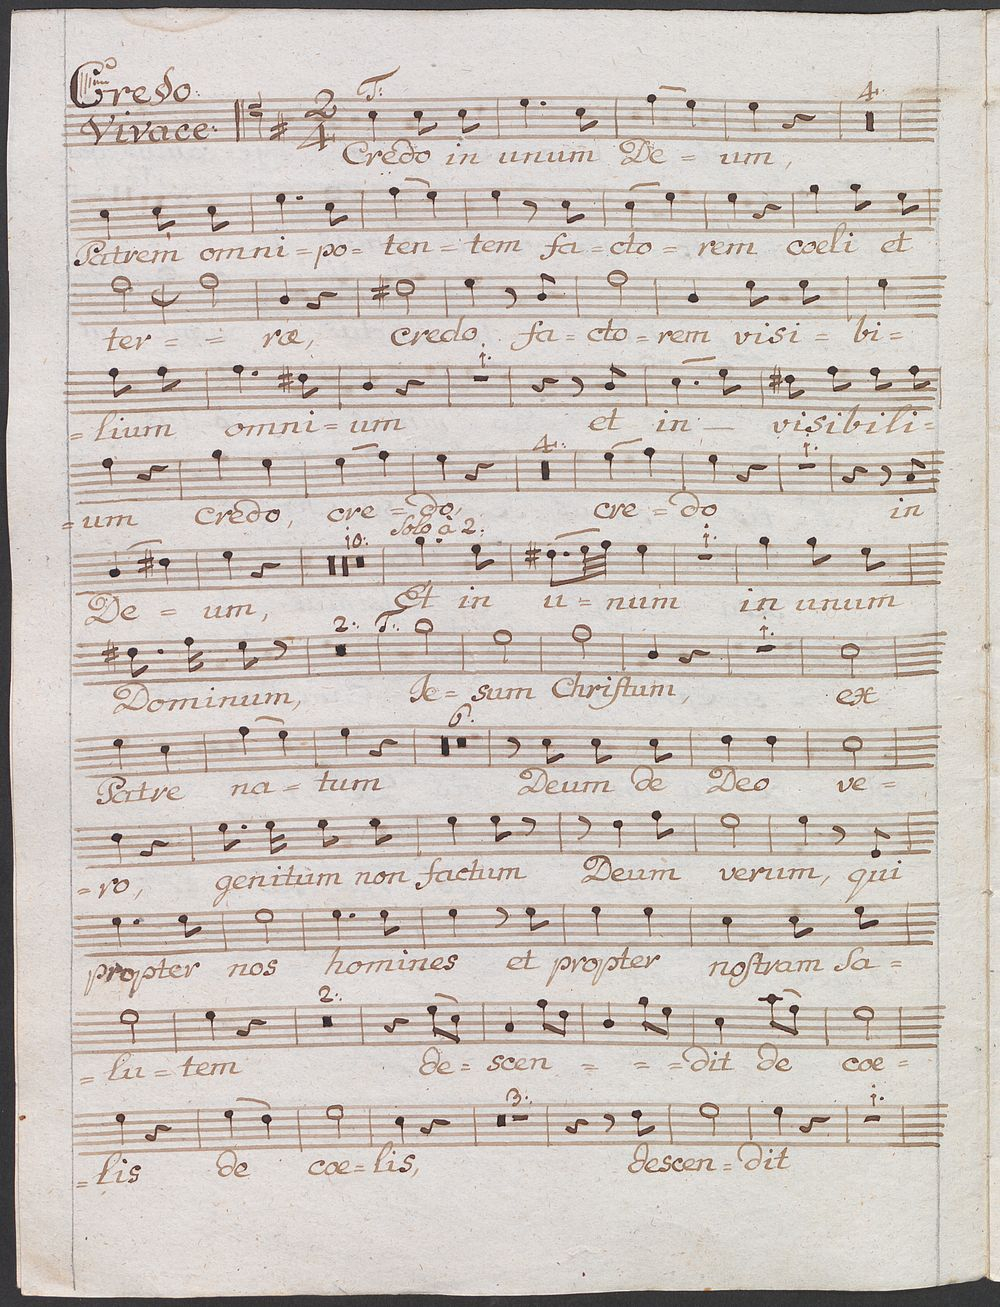 Credo.
Vivace.
2 4 T: 4.
Credo in unum De = um,
Patrem omni = po = ten = tem fa = cto = rem coeli et
ter = = ræ, credo fa = cto = rem visi = bi =
1.
= lium omni = um et in — visibili =
4. 1.
= um credo, cre = do, cre = do in
10. Solo à 2:
De = um, Et in u = num in unum
1.
2. T:
Dominum, Ie = sum Christum, ex
1.
6.
Patre na = tum Deum de Deo ve =
= ro, genitum non factum Deum verum, qui
propter nos homines et propter nostram Sa =
2.
= lu = tem de = scen = = = dit de coe =
3. 1.
= lis de coe = lis, descen = dit